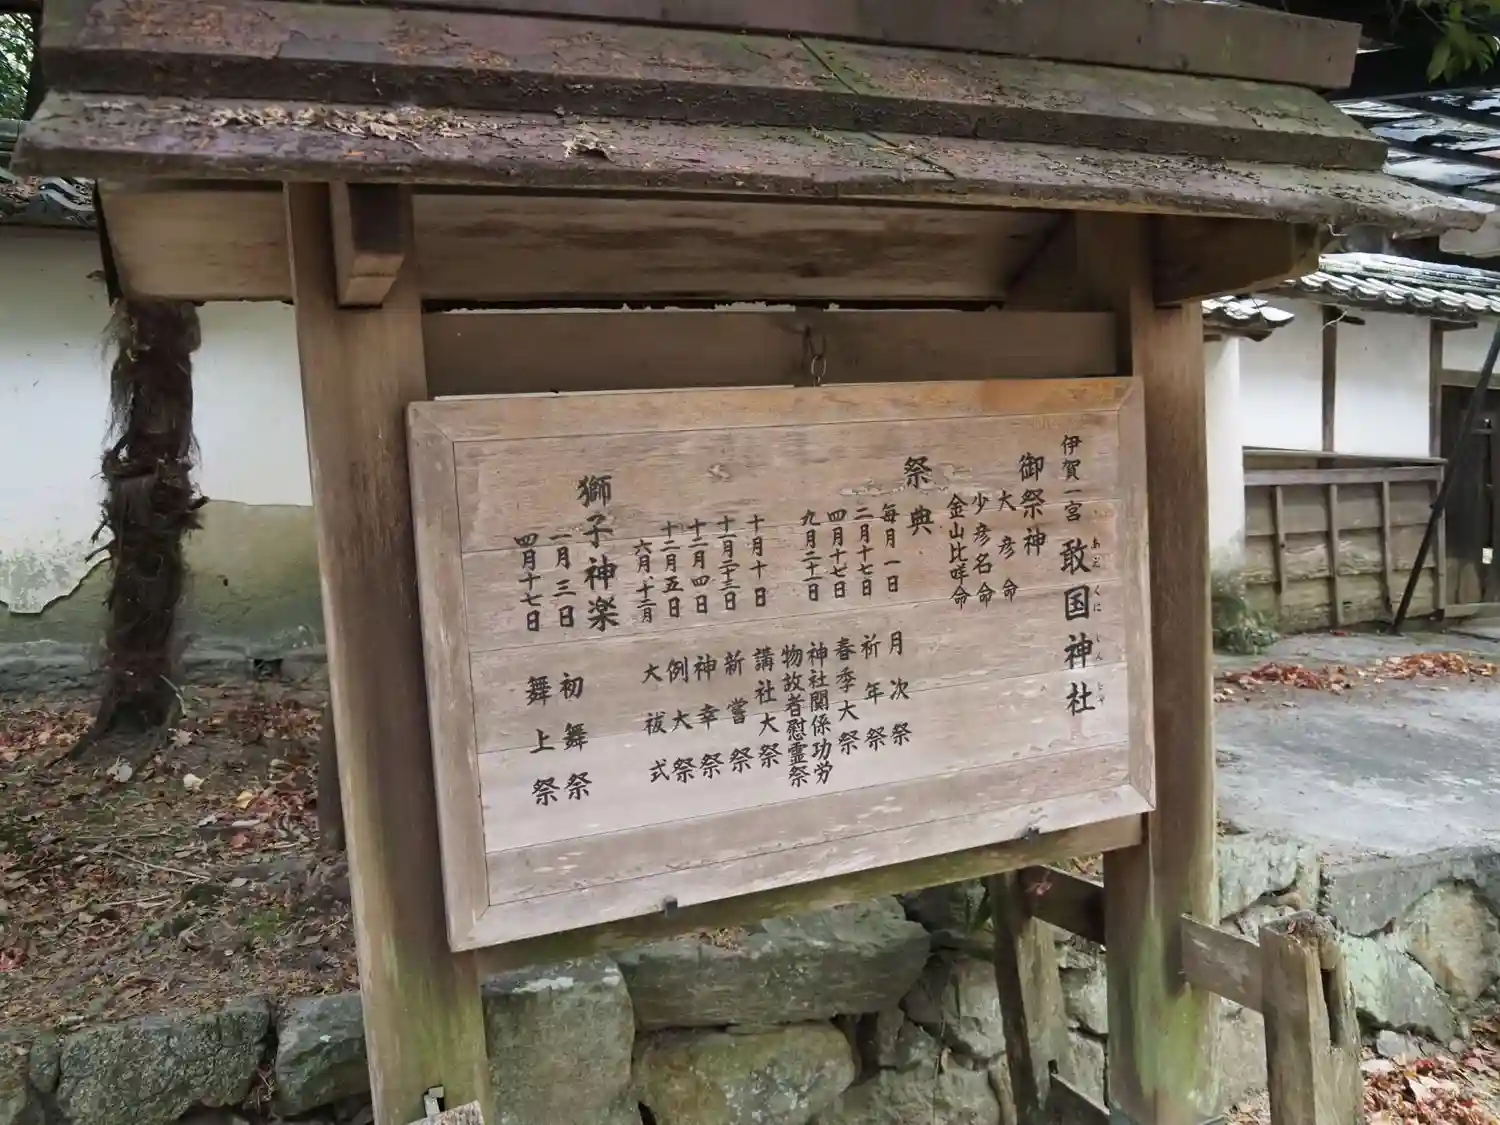 伊賀一宮 敢国神社
あえ くに じん じや
御祭神
大彦命
少彦名命
金山比咩命
祭典
毎月一日 月次祭
二月十七日 祈年祭
四月十七日 春季大祭
九月二十二日 神社関係功労
物故者慰霊祭
十月十日 講社大祭
十一月二十三日 新嘗祭
十二月四日 神幸祭
十二月五日 例大祭
六月、十二月 大祓式
獅子神楽
一月三日 初舞祭
四月十七日 舞上祭